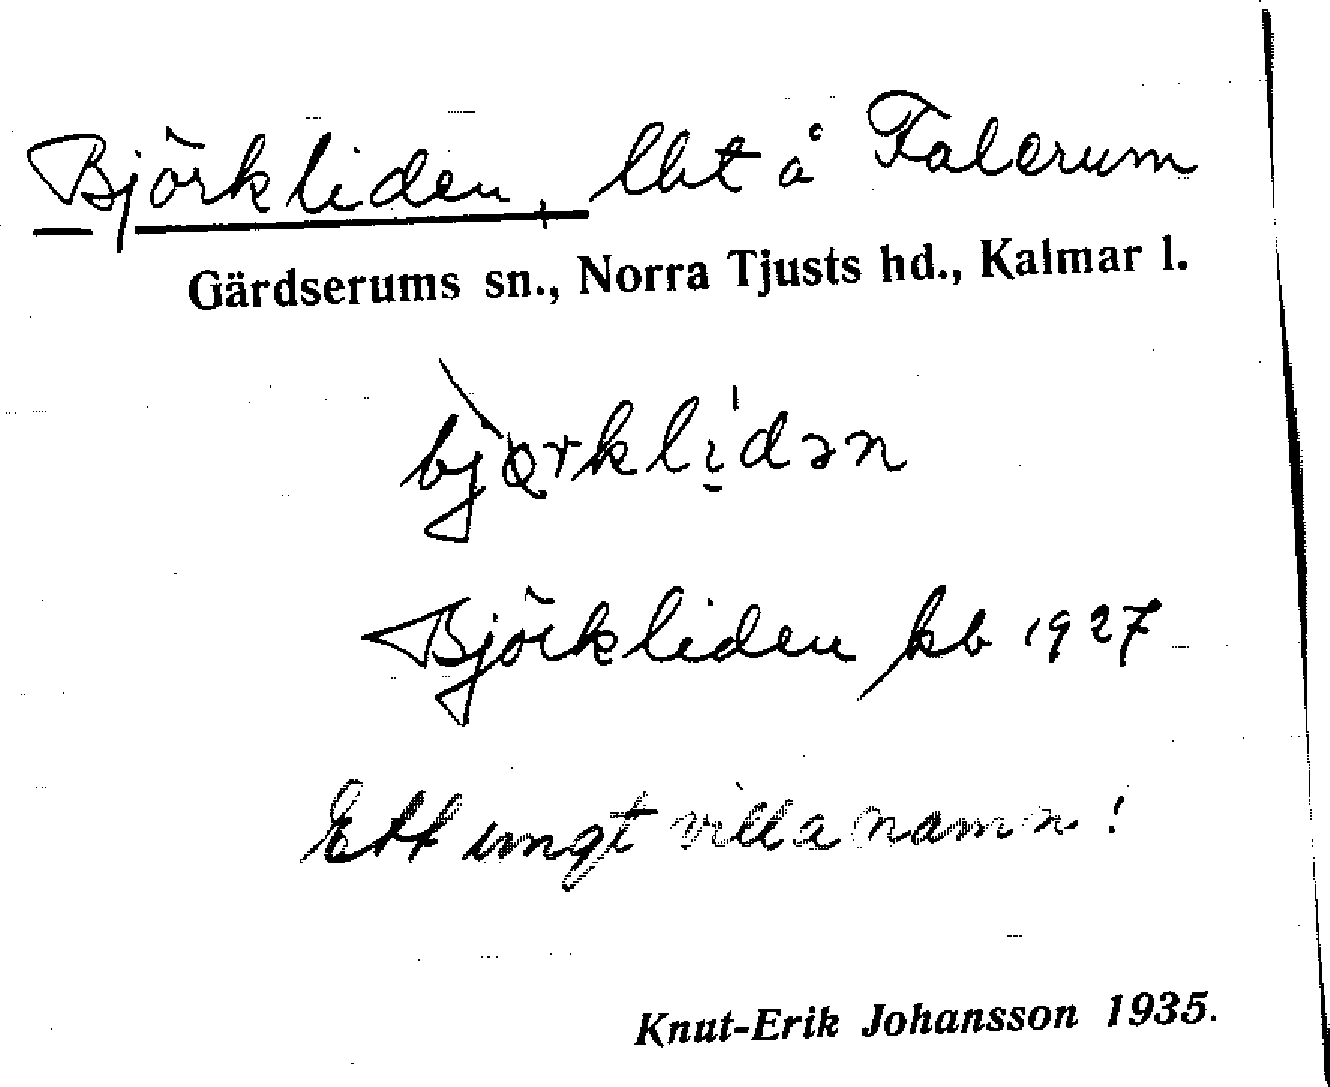 Björkliden, lht å Falerum
Gärdserums sn., Norra Tjusts hd., Kalmar l.
Björkliden kb 1927
Ett ungt villanamn!
Knut-Erik Johansson 1935.